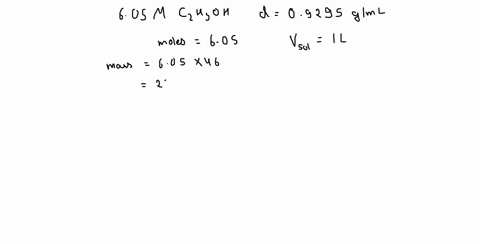 6.05 M C₂H₅OH d = 0.9295 g/mL
moles = 6.05 V_sol = 1L
mass = 6.05 × 46
= 2.